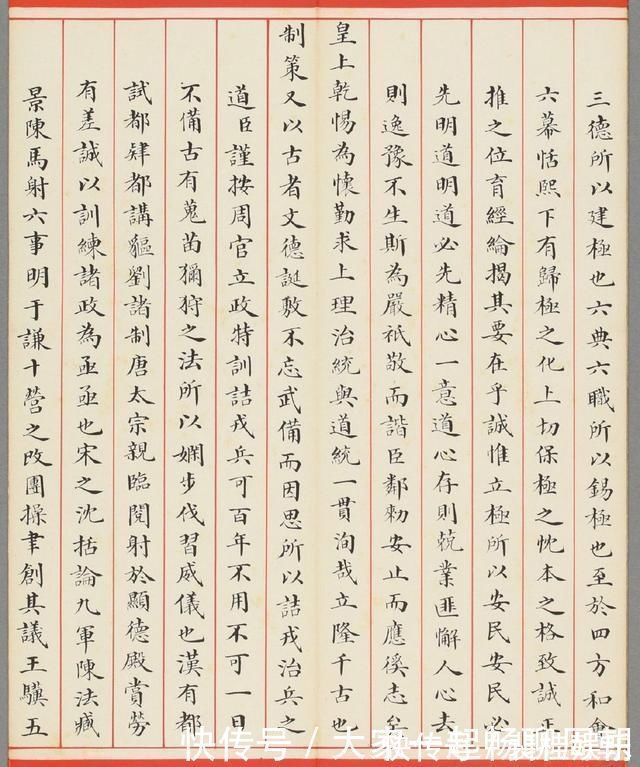 三德所以建極也六典六職所以錫極也至於四方和會
六幕恬熙下有歸極之化上切保極之忱本之格致誠正
推之位育經綸揭其要在乎誠惟立極所以安民安民必
先明道明道必先精心一意道心存則兢業匪懈人心去
則逸豫不生斯為嚴祇敬而諧臣鄰勑安止而應徯志矣
皇上乾惕為懷勤求上理治統與道統一貫洵哉立隆千古也
制策又以古者文德誕敷不忘武備而因思所以詰戎治兵之
道臣謹按周官立政特訓詰戎兵可百年不用不可一日
不備古有蒐苗獮狩之法所以嫻步伐習威儀也漢有都
試都肄都講貙劉諸制唐太宗親臨閱射於顯德殿賞勞
有差誠以訓練諸政為亟亟也宋之沈括論九軍陳法臧
景陳馬射六事明于謙十營之改團操聿創其議王驥五
快传号 / 大家